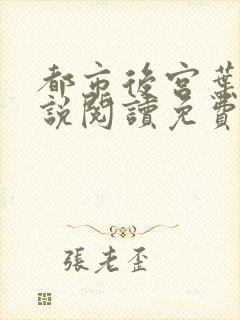 都市後宮葉
說閱讀免費
張老歪